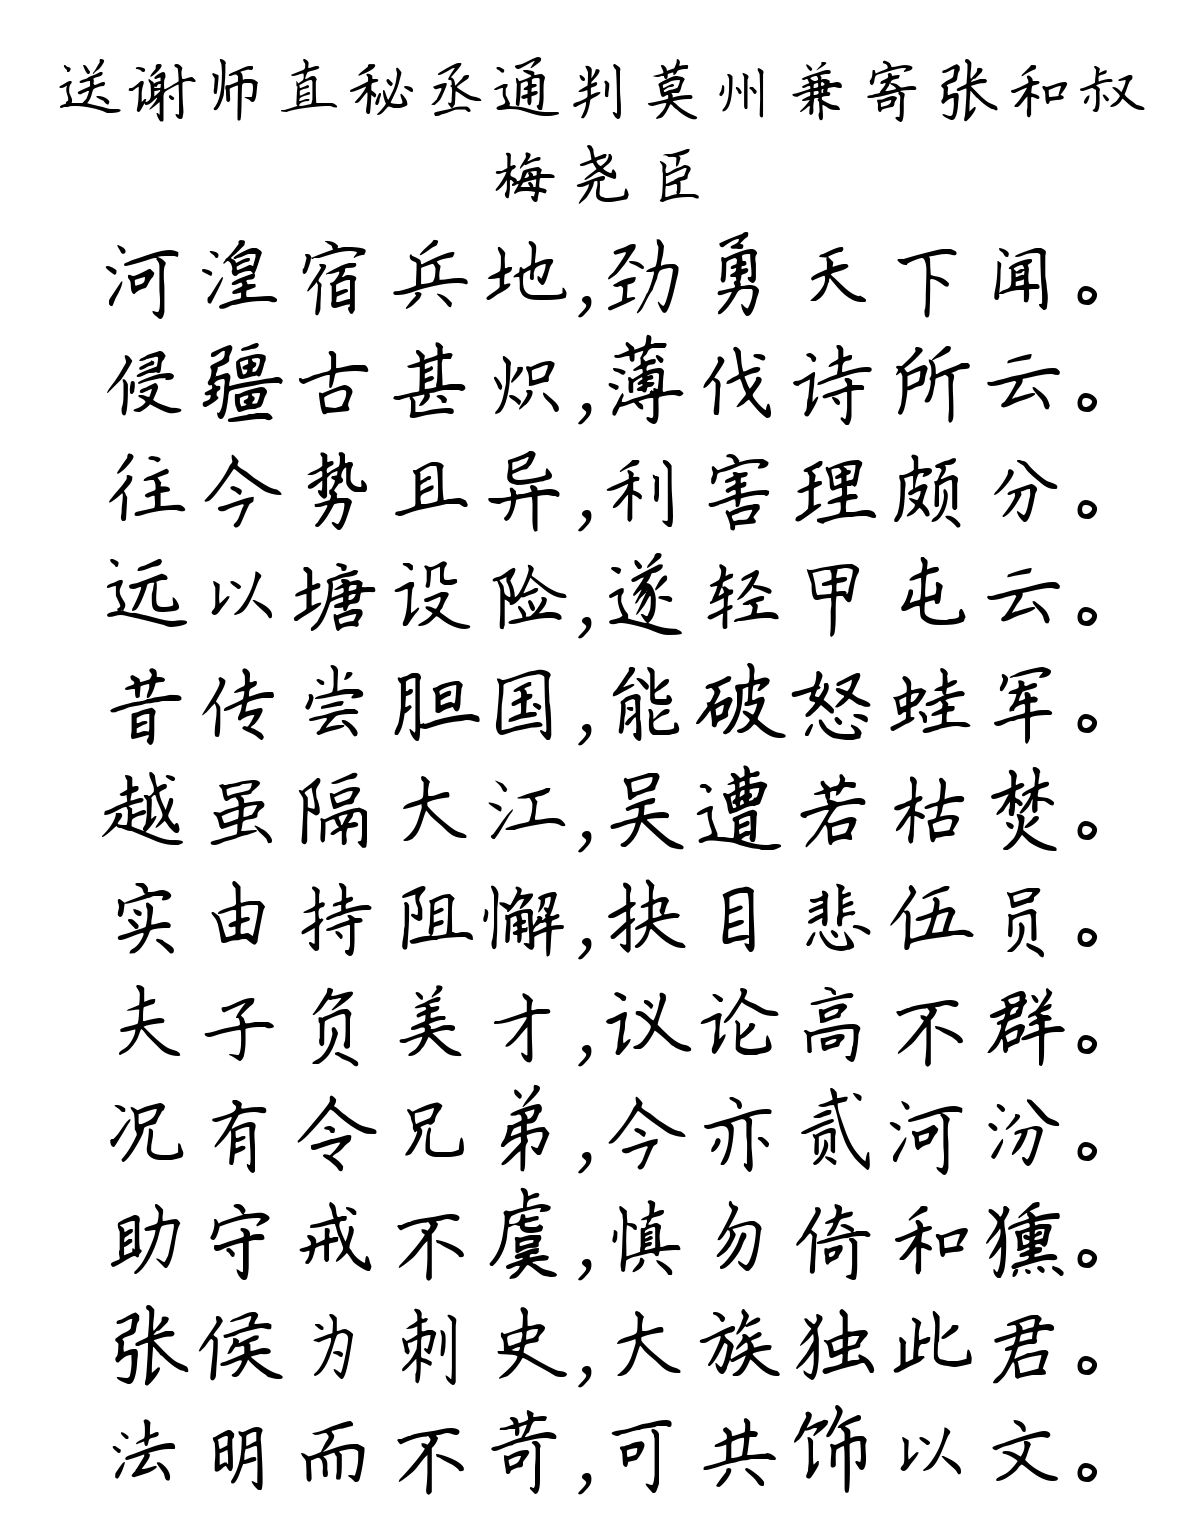 送谢师直秘丞通判莫州兼寄张和叔
梅尧臣
河湟宿兵地,劲勇天下闻。
侵疆古甚炽,薄伐诗所云。
往今势且异,利害理颇分。
远以塘设险,遂轻甲屯云。
昔传尝胆国,能破怒蛙军。
越虽隔大江,吴遭若枯焚。
实由持阻懈,抉目悲伍员。
夫子负美才,议论高不群。
况有令兄弟,今亦贰河汾。
助守戒不虞,慎勿倚和獯。
张侯为刺史,大族独此君。
法明而不苛,可共饰以文。